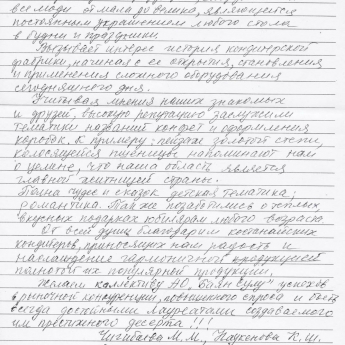 все люди от мала до велика, являющегося
постоянным украшением любого стола
в будни и праздники.
Вызывает интерес история кондитерской
фабрики, начиная с её открытия, становления
и применения сложного оборудования
сегодняшнего дня.
Учитывая мнения наших знакомых
и друзей, высокую репутацию заслужили
тематики названий конфет и оформления
коробок. К примеру: пейзаж золотой степи,
колосящейся пшеницы напоминают нам
о целине, что наша область является
главной житницей страны.
Полна чудес и сказок детская тематика;
романтика. Также позаботились о тёплых
вкусных подарках юбилярам любого возраста
От всей души благодарим костанайских
кондитеров, приносящих нам радость и
наслаждение гармоничной продукцией
полнотой их популярной продукции.
Желаем коллективу АО "Баян Сулу" успехов
в рыночной конкуренции, повышенного спроса и быть
всегда достойными лауреатами создаваемого
им престижного десерта!!!
М.М., Наукенова К.Ш.